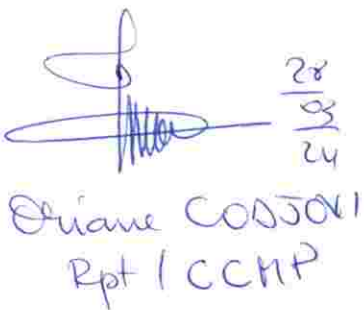 28
03
24
Oriane CODJOVI
Rpt / CCMP